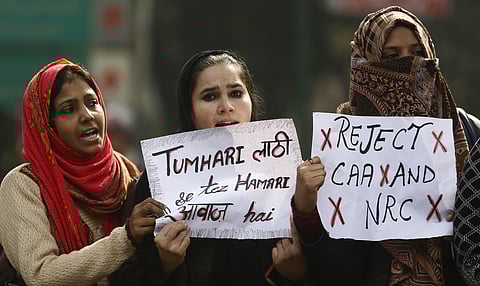 TUMHARI लाठी
से तेz HAMARI
आवाज hai
REJECT
CAA AND
NRC